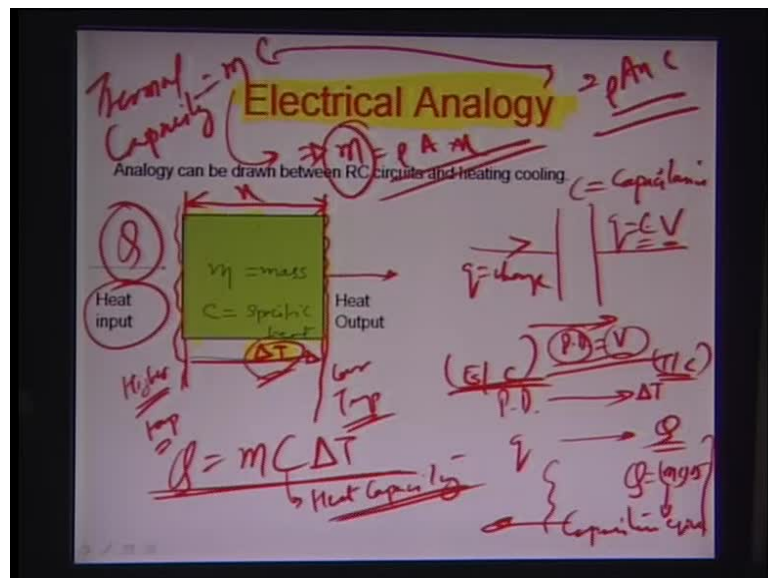 Thermal Capacity = m C = ρAx C
Electrical Analogy
⇒ m = ρ A x
Analogy can be drawn between RC circuits and heating cooling.
C = Capacitance
x
Q
Heat
input
m = mass
C = Specific
heat
Heat
Output
q = charge
q = CV
ΔT
Higher
Temp
Lower
Temp
P.D. = V
(E/C) (T/C)
P.D. → ΔT
q → Q
Q = mCΔT
Heat Capacity